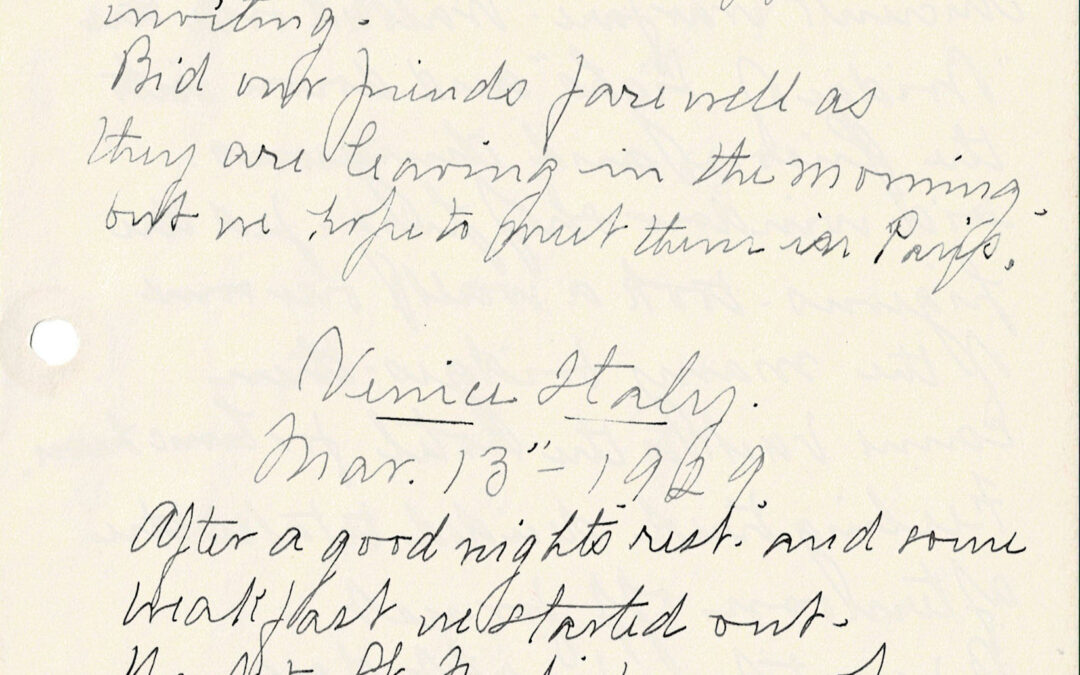 inviting.
Bid our friends farewell as
they are leaving in the morning.
but we hope to meet them in Paris.
Venice Italy.
Mar. 13" - 1929.
After a good nights rest. and some
breakfast we started out.